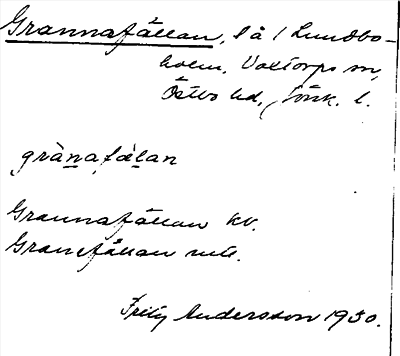 Grannafällan, lä 1 Lundbo-
holm, Voxtorps sn,
Östbo hd, Jönk. l.
grànafälan
Grannafällan kv.
Granefällan
Fritz Andersson 1930.